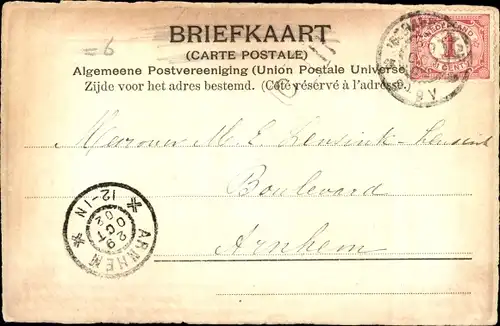 = 6
BRIEFKAART
(CARTE POSTALE)
Algemeene Postvereeniging (Union Postale Universe
Zijde voor het adres bestemd. (Côté réservé à l'adresse
8 V
Mevrouw M. E. Lensink-Lensink
Boulevard
Arnhem
ARNHEM
29 OCT 02
12-1N